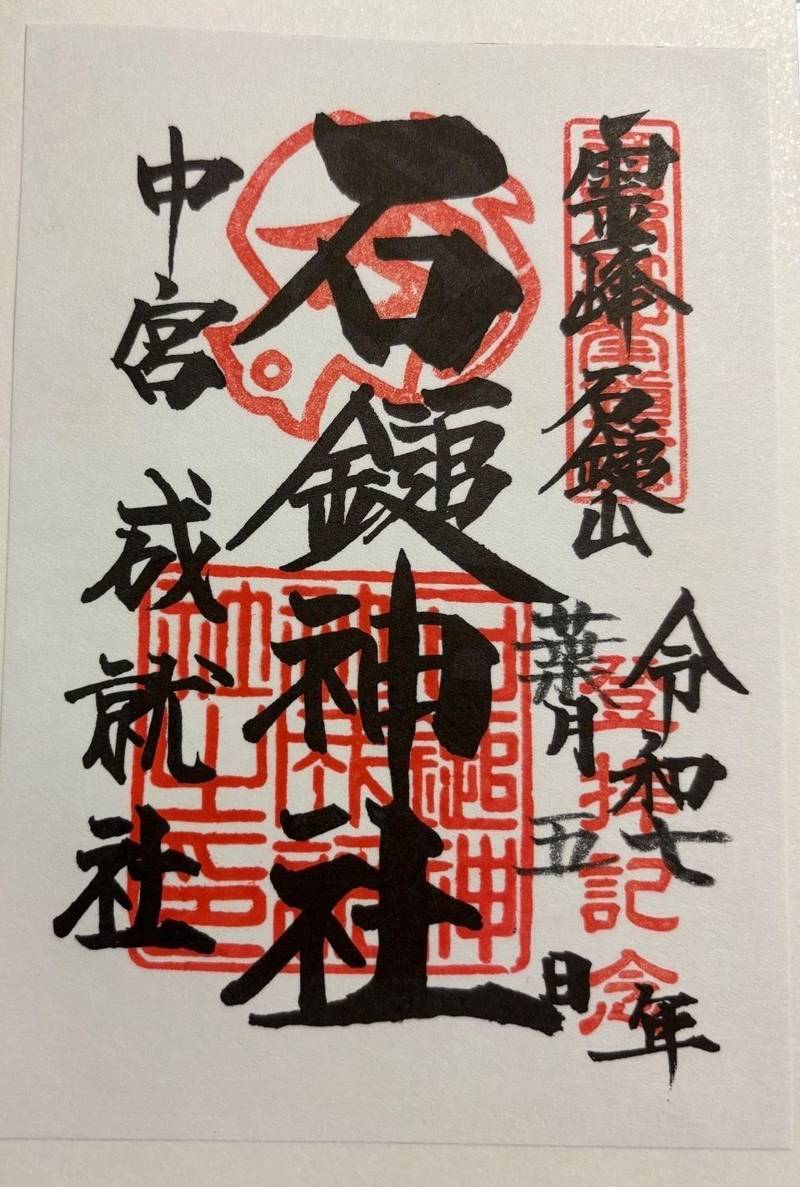 霊峰 石鎚山
登拝記念
令和七年
葉月五日
石鎚神社
石鎚神
社之印
中宮 成就社